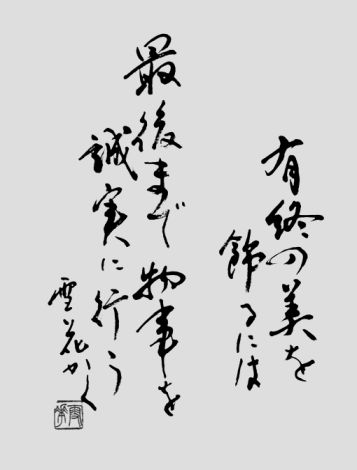 有終の美を
飾るには
最後まで物事を
誠実に行う
雪花かく